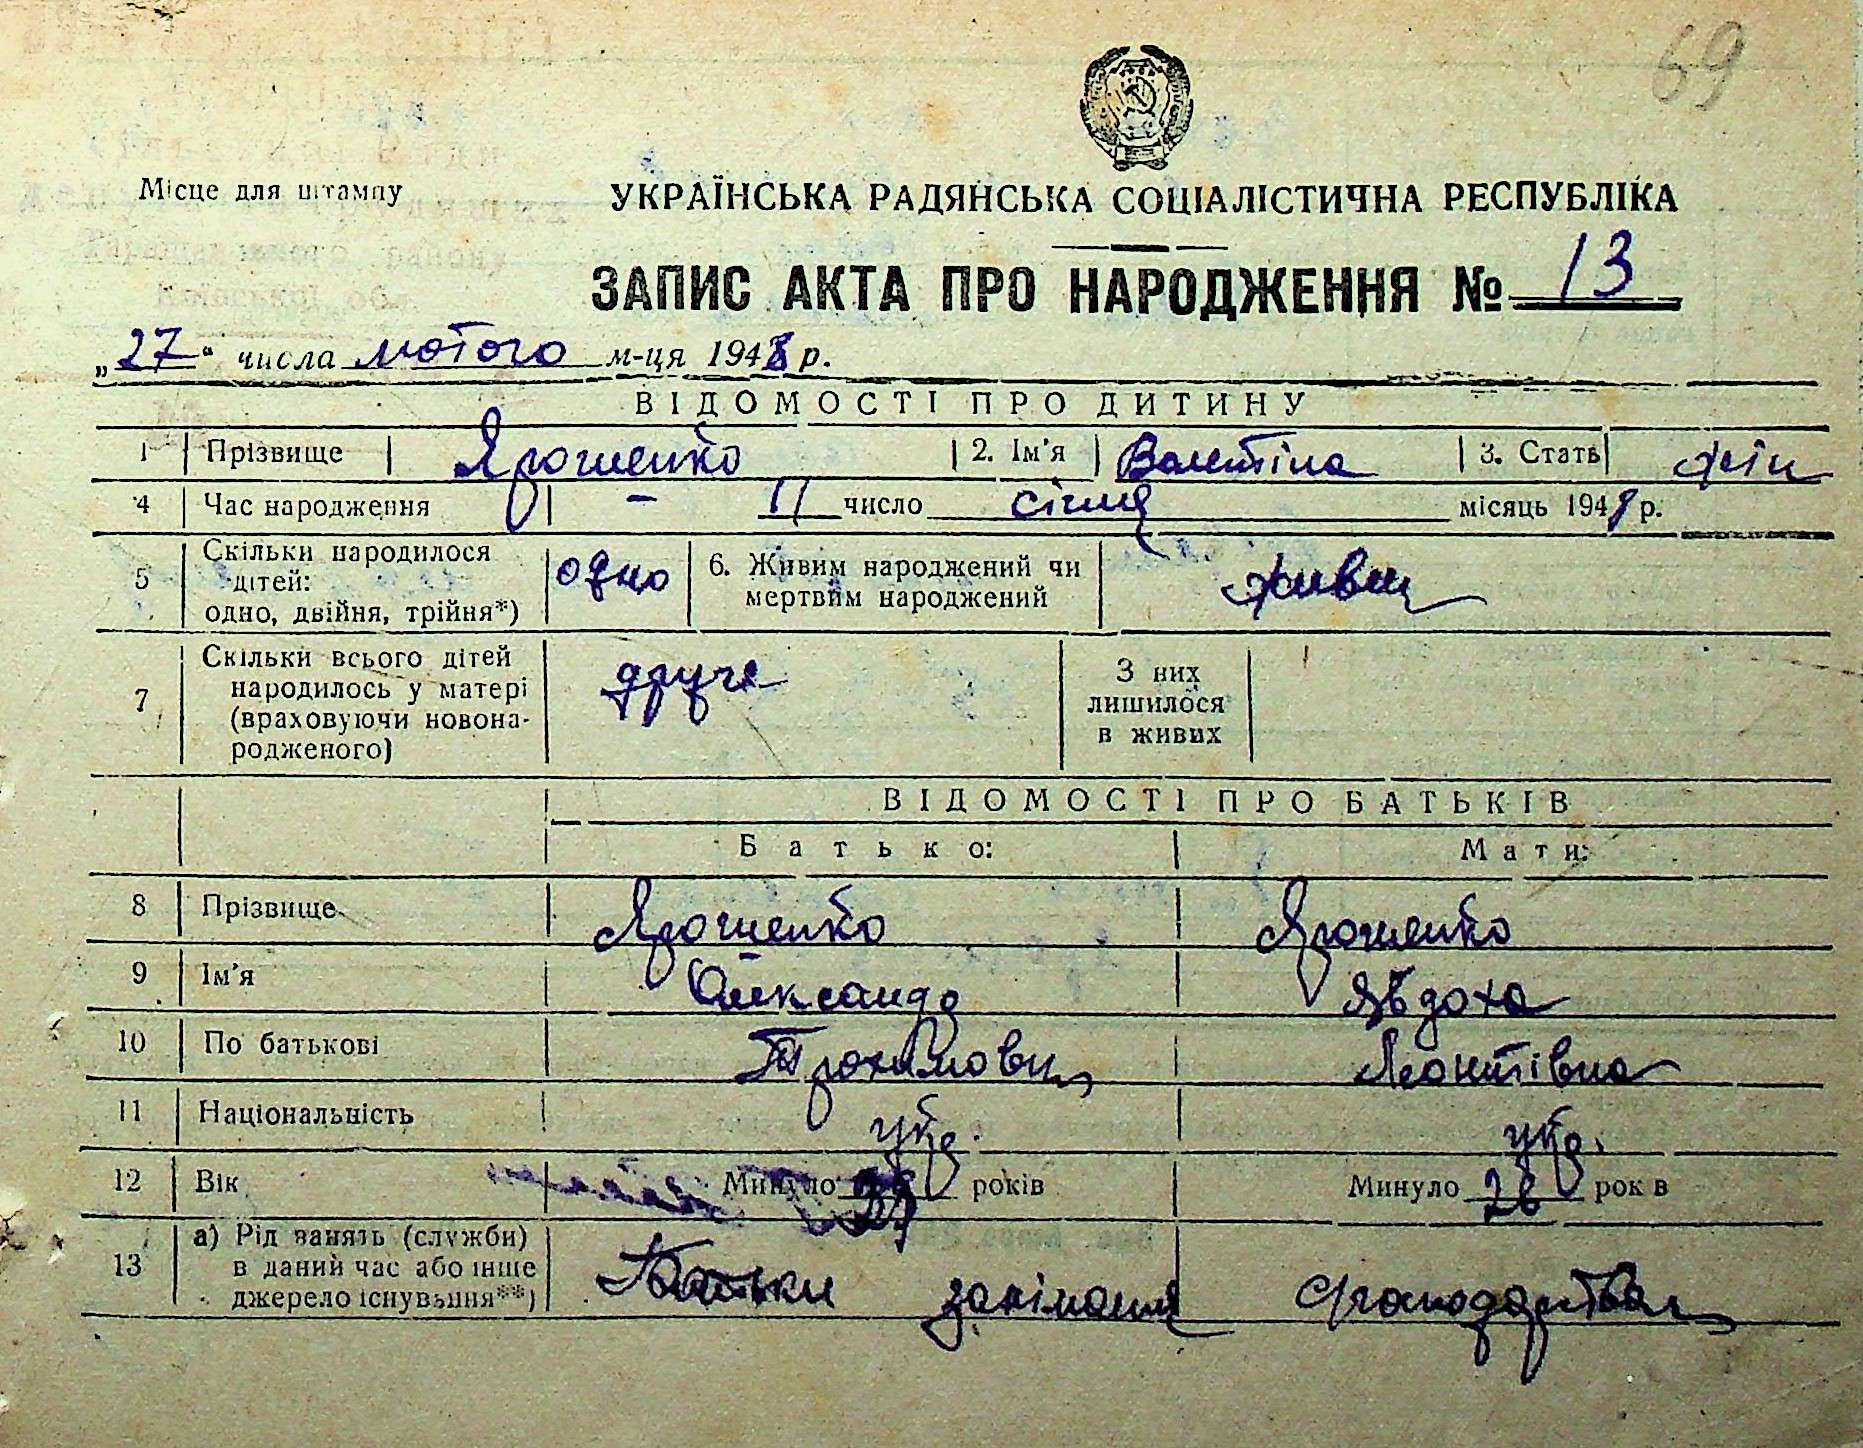 69
Місце для штампу
УКРАЇНСЬКА РАДЯНСЬКА СОЦІАЛІСТИЧНА РЕСПУБЛІКА
ЗАПИС АКТА ПРО НАРОДЖЕННЯ № 13
„27“ числа лютого м-ця 1948 р.
ВІДОМОСТІ ПРО ДИТИНУ
1 Прізвище Ярошенко 2. Ім'я Валентіна 3. Стать жін
4 Час народження 11 число січня місяць 1948 р.
5 Скільки народилося дітей: одно, двійня, трійня*) одно 6. Живим народжений чи мертвим народжений живим
7 Скільки всього дітей народилось у матері (враховуючи новонародженого) друге З них лишилося в живих
ВІДОМОСТІ ПРО БАТЬКІВ
Батько: Мати:
8 Прізвище Ярошенко Ярошенко
9 Ім'я Олександр Явдоха
10 По батькові Трохимович Леонтівна
11 Національність укр. укр.
12 Вік Минуло років Минуло 28 рок в
13 а) Рід занять (служби) в даний час або інше джерело існування**)